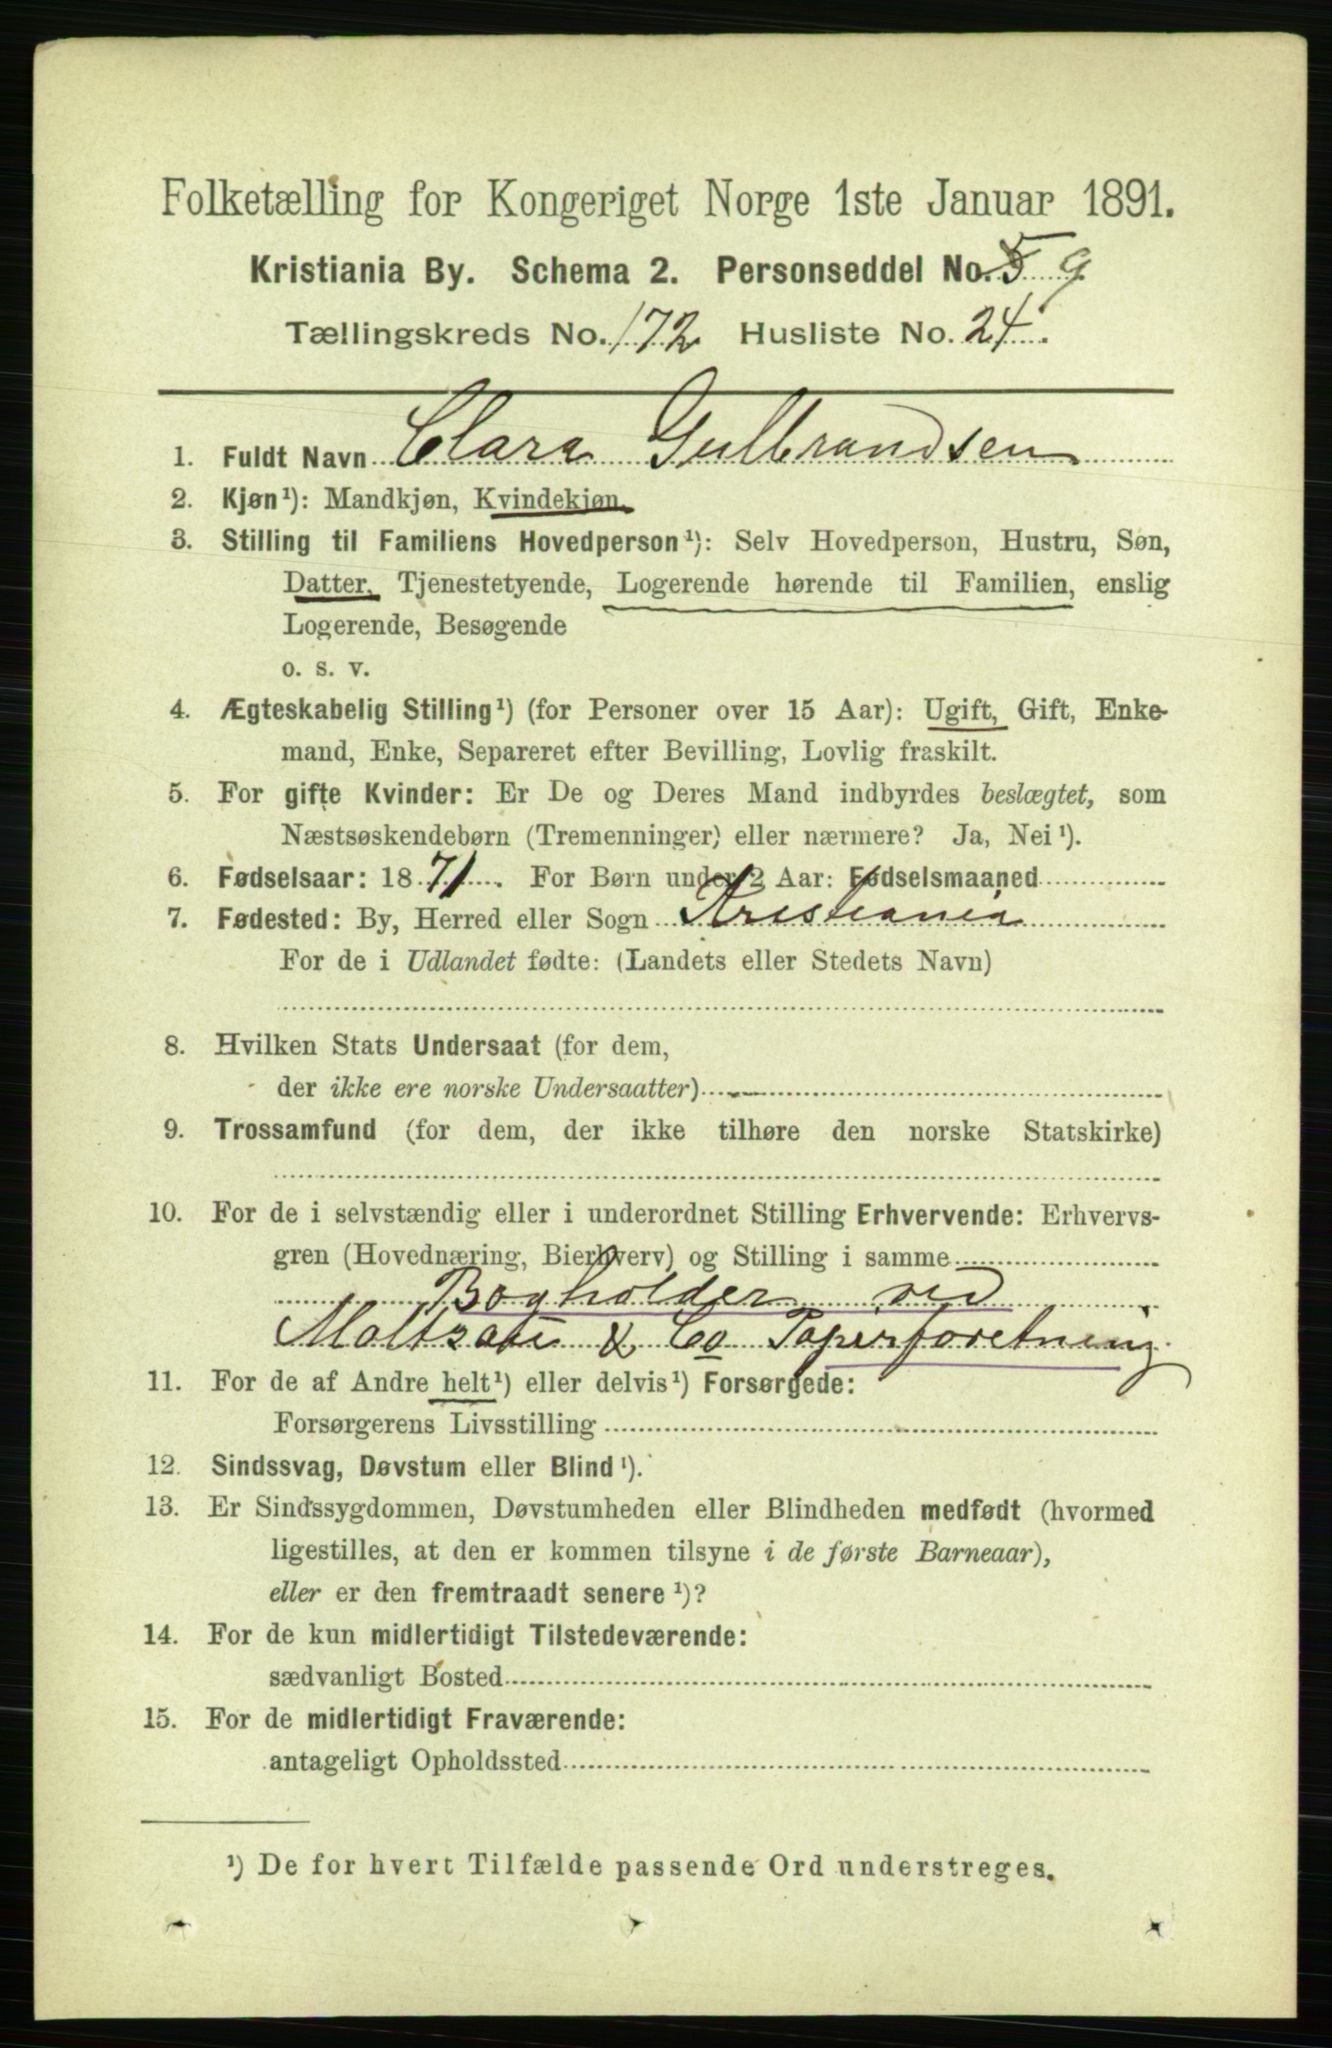 Folketælling for Kongeriget Norge 1ste Januar 1891.
Kristiania By. Schema 2. Personseddel No. 5 9
Tællingskreds No. 172 Husliste No. 24.
1. Fuldt Navn Clara Gulbrandsen
2. Kjøn¹): Mandkjøn, Kvindekjøn.
3. Stilling til Familiens Hovedperson¹): Selv Hovedperson, Hustru, Søn,
Datter, Tjenestetyende, Logerende hørende til Familien, enslig
Logerende, Besøgende
o. s. v.
4. Ægteskabelig Stilling¹) (for Personer over 15 Aar): Ugift, Gift, Enke-
mand, Enke, Separeret efter Bevilling, Lovlig fraskilt.
5. For gifte Kvinder: Er De og Deres Mand indbyrdes beslægtet, som
Næstsøskendebørn (Tremenninger) eller nærmere? Ja, Nei¹).
6. Fødselsaar: 1871. For Børn under 2 Aar: Fødselsmaaned
7. Fødested: By, Herred eller Sogn Kristiania
For de i Udlandet fødte: (Landets eller Stedets Navn)
8. Hvilken Stats Undersaat (for dem,
der ikke ere norske Undersaatter)
9. Trossamfund (for dem, der ikke tilhøre den norske Statskirke)
10. For de i selvstændig eller i underordnet Stilling Erhvervende: Erhvervs-
gren (Hovednæring, Bierhverv) og Stilling i samme
Bogholder ved
& Co Papirforetning
11. For de af Andre helt¹) eller delvis¹) Forsørgede:
Forsørgerens Livsstilling
12. Sindssvag, Døvstum eller Blind¹).
13. Er Sindssygdommen, Døvstumheden eller Blindheden medfødt (hvormed
ligestilles, at den er kommen tilsyne i de første Barneaar),
eller er den fremtraadt senere¹)?
14. For de kun midlertidigt Tilstedeværende:
sædvanligt Bosted
15. For de midlertidigt Fraværende:
antageligt Opholdssted
¹) De for hvert Tilfælde passende Ord understreges.